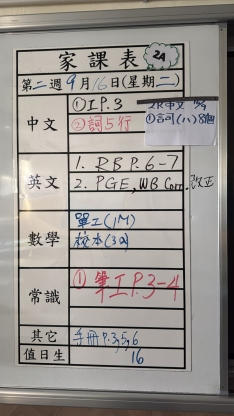 家課表 2A
第二週9月16日(星期二)
中文
①工P.3
②詞5行
2A中文
①詞(八)8個
英文
1. RB P.6-7
2. PGE, WB Corr. 改正
數學
單工(1M)
校本(3Q)
常識
① 筆工P.3-4
其它
手冊P.3,5,6
值日生
16